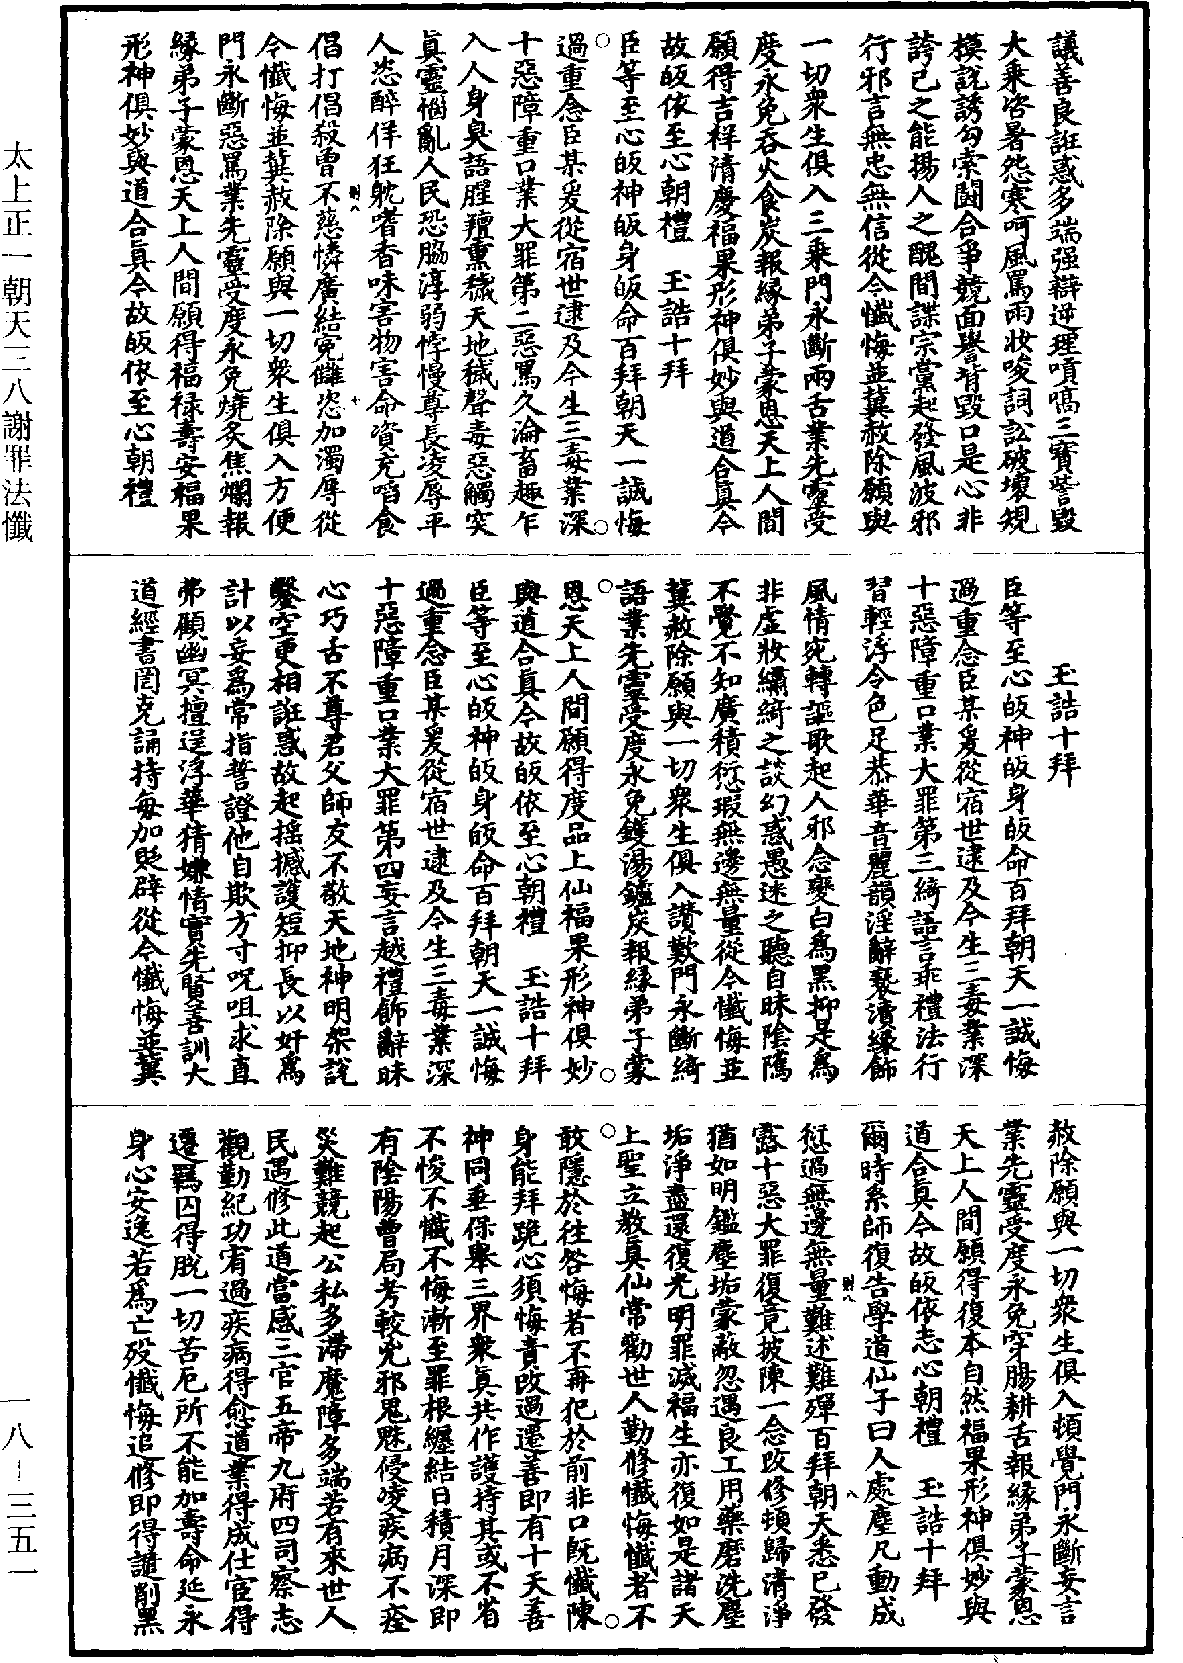 議善良誑惑多端强辯逆理嘖嗃三寶訾毀
大乘咨暑怨寒呵風罵雨妝唆詞訟破壞規
模説誘勾索鬪合爭競面譽背毀口是心非
誇己之能揚人之醜間諜宗黨起發風波邪
行邪言無忠無信從今懺悔並冀赦除願與
一切衆生俱入三乘門永斷兩舌業先靈受
度永免吞火食炭報縁弟子蒙恩天上人間
願得吉祥清慶福果形神俱妙與道合眞今
故皈依至心朝禮 玉誥十拜
臣等至心皈神皈身皈命百拜朝天一誠悔
過重念臣某爰從宿世逮及今生三毒業深
十惡障重口業大罪第二惡罵久淪畜趣乍
入人身臭語腥羶熏穢天地穢聲毒惡觸突
眞靈惱亂人民恐脇淳弱悖慢尊長凌辱平
人恣醉佯狂躭嗜香味害物害命資充啗食
倡打倡殺曾不慈憐廣結冤讎恣加濁辱從
今懺悔並冀赦除願與一切衆生俱入方便
門永斷惡罵業先靈受度永免燒炙焦爛報
縁弟子蒙恩天上人間願得福禄壽安福果
形神俱妙與道合眞今故皈依至心朝禮
玉誥十拜
臣等至心皈神皈身皈命百拜朝天一誠悔
過重念臣某爰從宿世逮及今生三毒業深
十惡障重口業大罪第三綺語言乖禮法行
習輕浮令色足恭華音麗韻淫辭褻瀆縁飾
風情宛轉謳歌起人邪念變白爲黑抑是爲
非虚妝繡綺之談幻惑愚迷之聽自昧陰隲
不覺不知廣積愆瑕無邊無量從今懺悔並
冀赦除願與一切衆生俱入讃歎門永斷綺
語業先靈受度永免鑊湯鑪炭報縁弟子蒙
恩天上人間願得度品上仙福果形神俱妙
與道合眞今故皈依至心朝禮 玉誥十拜
臣等至心皈神皈身皈命百拜朝天一誠悔
過重念臣某爰從宿世逮及今生三毒業深
十惡障重口業大罪第四妄言越禮飾辭昧
心巧舌不尊君父師友不敬天地神明架説
鑿空更相誑惑故起摇撼護短抑長以奸爲
計以妄爲常指誓證他自欺方寸呪咀求直
弗顧幽冥擅逞浮華猜嫌情實先賢善訓大
道經書罔克誦持每加貶辟從今懺悔並冀
赦除願與一切衆生俱入頓覺門永斷妄言
業先靈受度永免穿腸耕舌報縁弟子蒙恩
天上人間願得復本自然福果形神俱妙與
道合眞今故皈依志心朝禮 玉誥十拜
爾時系師復告學道仙子曰人處塵凡動成
愆過無邊無量難述難殫百拜朝天悉已發
露十惡大罪復竟披陳一念改修頓歸清淨
猶如明鑑塵垢蒙蔽忽遇良工用藥磨洗塵
垢淨盡還復光明罪滅福生亦復如是諸天
上聖立教眞仙常勸世人勤修懺悔懺者不
敢隱於往咎悔者不再犯於前非口旣懺陳
身能拜跪心須悔責改過遷善即有十天善
神同垂保舉三界衆眞共作護持其或不省
不悛不懺不悔漸至罪根纏結日積月深即
有陰陽曹局考較兇邪鬼魅侵凌疾病不痊
災難競起公私多滯魔障多端若有來世人
民遇修此道當感三官五帝九府四司察志
觀勤紀功宥過疾病得愈道業得成仕宦得
遷羈囚得脱一切苦厄所不能加壽命延永
身心安逸若爲亡殁懺悔追修即得譴削黑
太上正一朝天三八謝罪法懺
一八-三五一